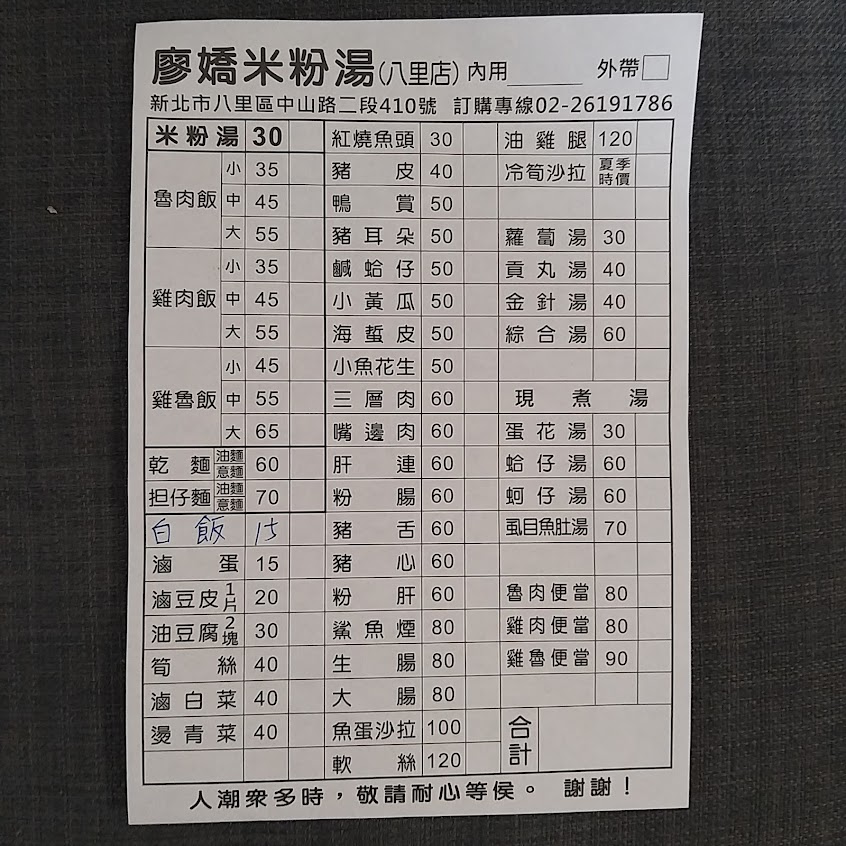 廖嬌米粉湯(八里店) 內用______ 外帶□
新北市八里區中山路二段410號 訂購專線02-26191786
米粉湯 30
魯肉飯 小 35
中 45
大 55
雞肉飯 小 35
中 45
大 55
雞魯飯 小 45
中 55
大 65
乾麵 油麵 意麵 60
担仔麵 油麵 意麵 70
白飯 15
滷蛋 15
滷豆皮1片 20
油豆腐2塊 30
筍絲 40
滷白菜 40
燙青菜 40
紅燒魚頭 30
豬皮 40
鴨賞 50
豬耳朵 50
鹹蛤仔 50
小黃瓜 50
海蜇皮 50
小魚花生 50
三層肉 60
嘴邊肉 60
肝連 60
粉腸 60
豬舌 60
豬心 60
粉肝 60
鯊魚煙 80
生腸 80
大腸 80
魚蛋沙拉 100
軟絲 120
油雞腿 120
冷筍沙拉 夏季時價
蘿蔔湯 30
貢丸湯 40
金針湯 40
綜合湯 60
現煮湯
蛋花湯 30
蛤仔湯 60
蚵仔湯 60
虱目魚肚湯 70
魯肉便當 80
雞肉便當 80
雞魯便當 90
合計
人潮眾多時，敬請耐心等侯。 謝謝！